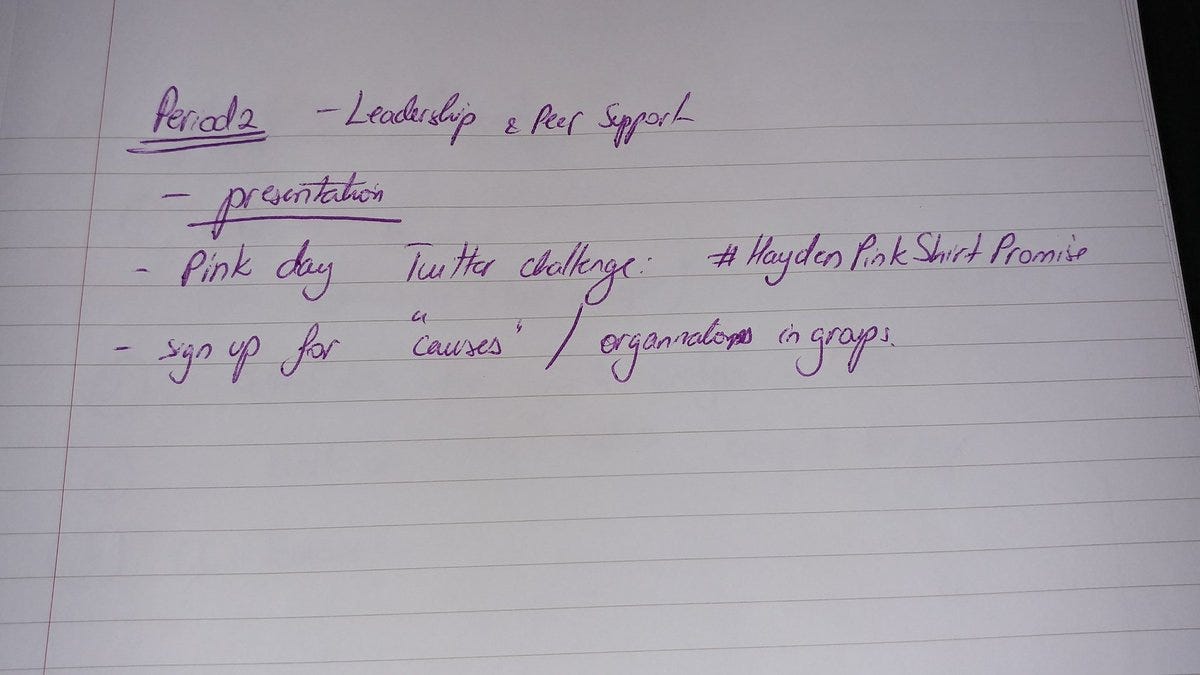 Period 2 - Leadership & Peer Support
- presentation
- Pink day Twitter challenge: #HaydenPinkShirtPromise
- sign up for "causes" / organizations in groups.